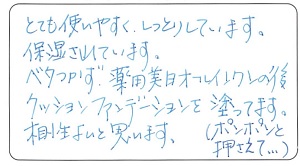 とても使いやすく、しっとりしています。
保湿されています。
ベタつかず、薬用美白オールインワンの後
クッションファンデーションを塗ってます。
相性よいと思います。
(ポンポンと
押さえて…)